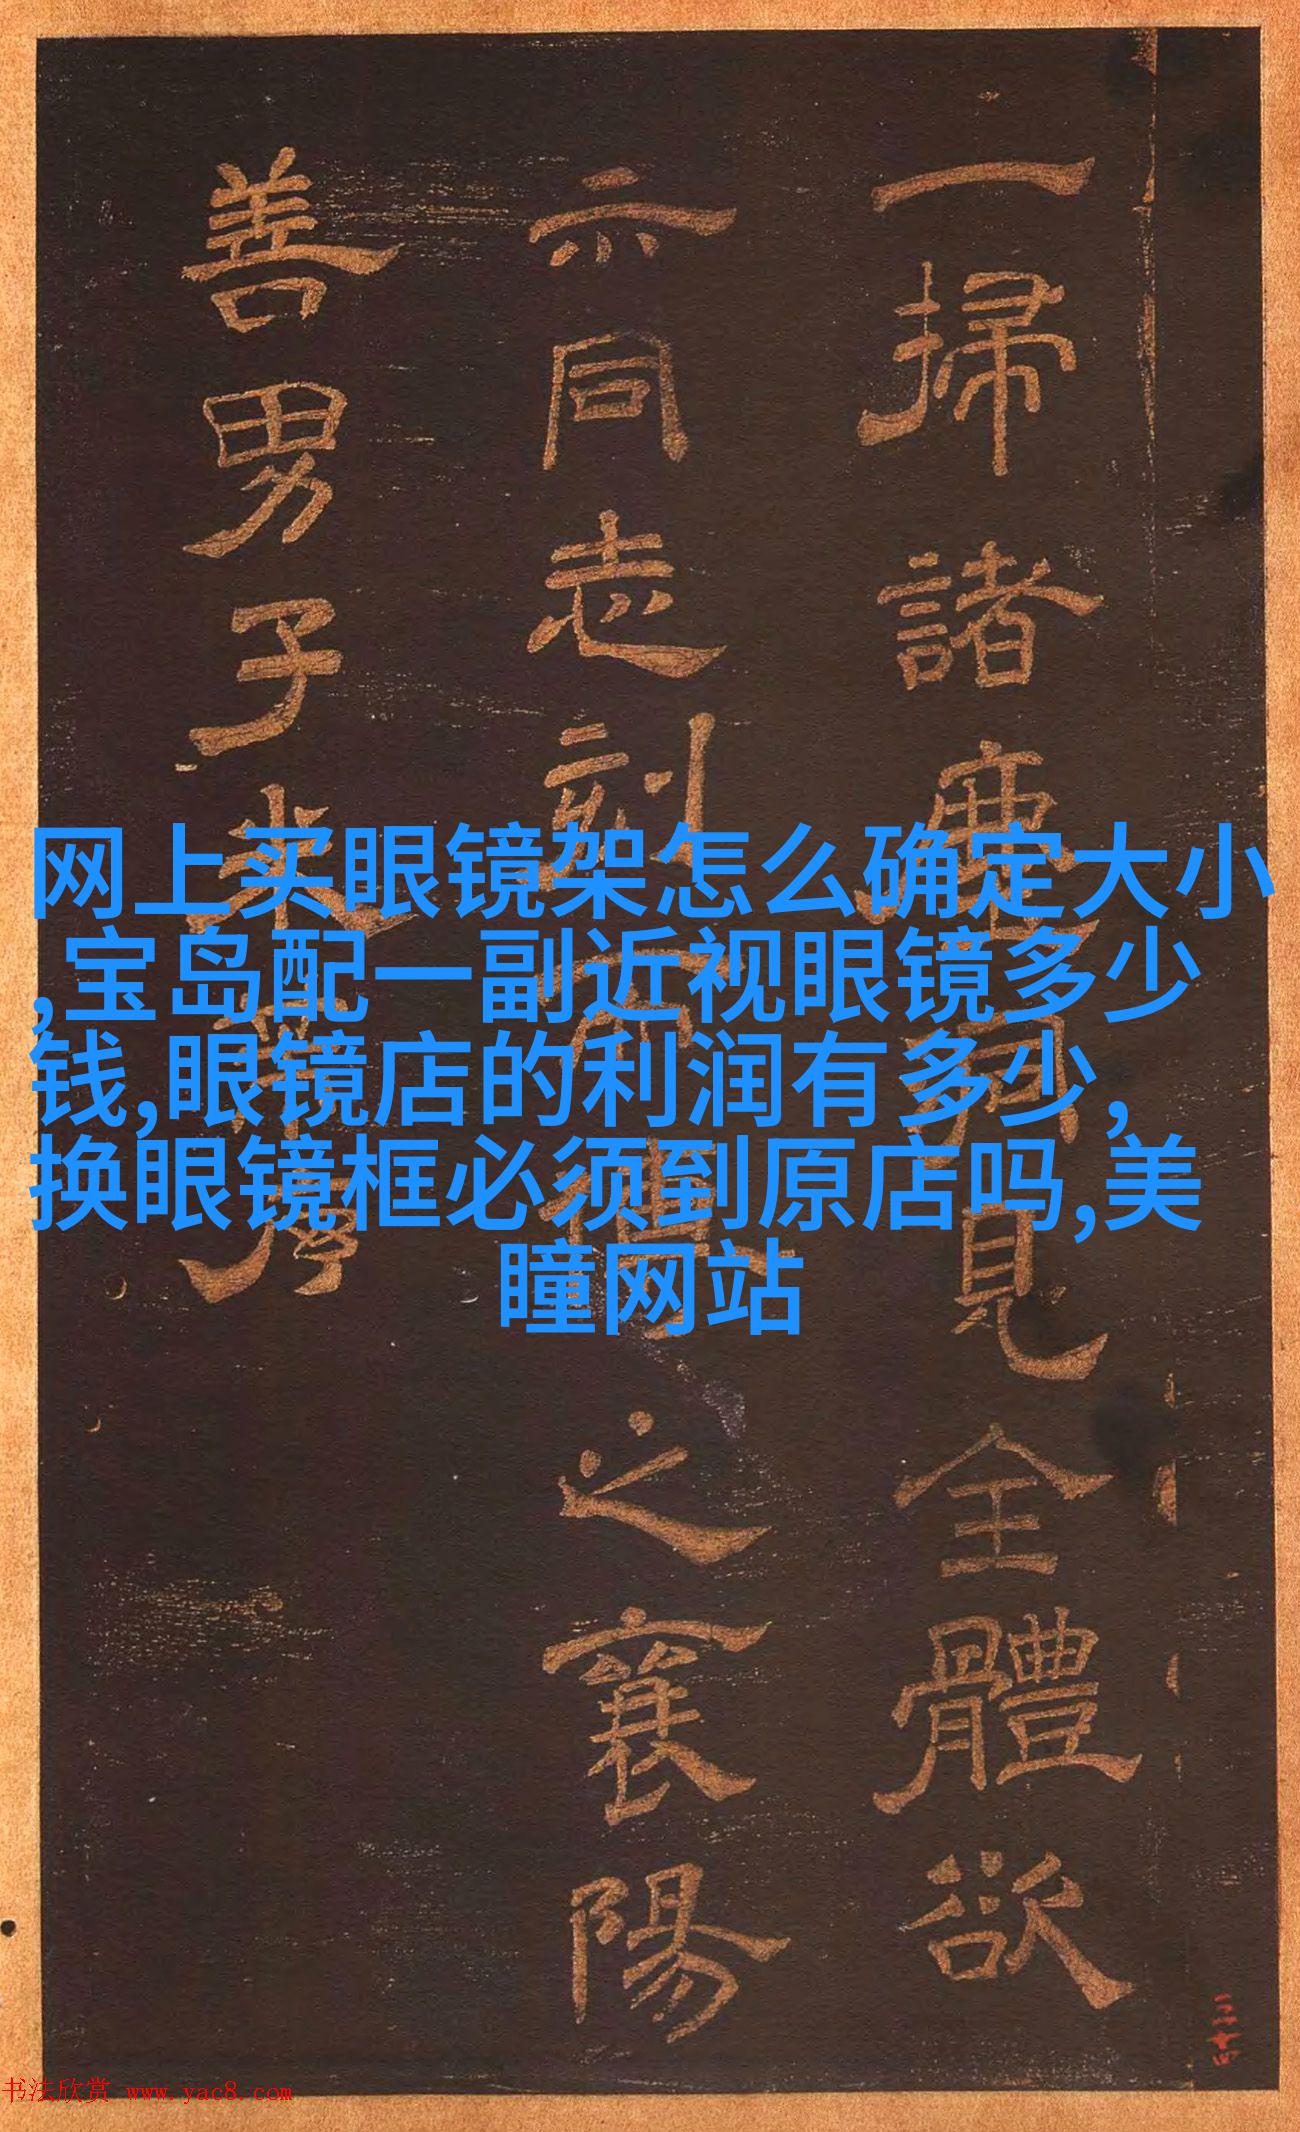 一掃諸塵
見全體欲
示同志刻
之襄陽
善男子米
网上买眼镜架怎么确定大小
,宝岛配一副近视眼镜多少
钱,眼镜店的利润有多少,
换眼镜框必须到原店吗,美
瞳网站
三十四
书法欣赏 www.yac8.com